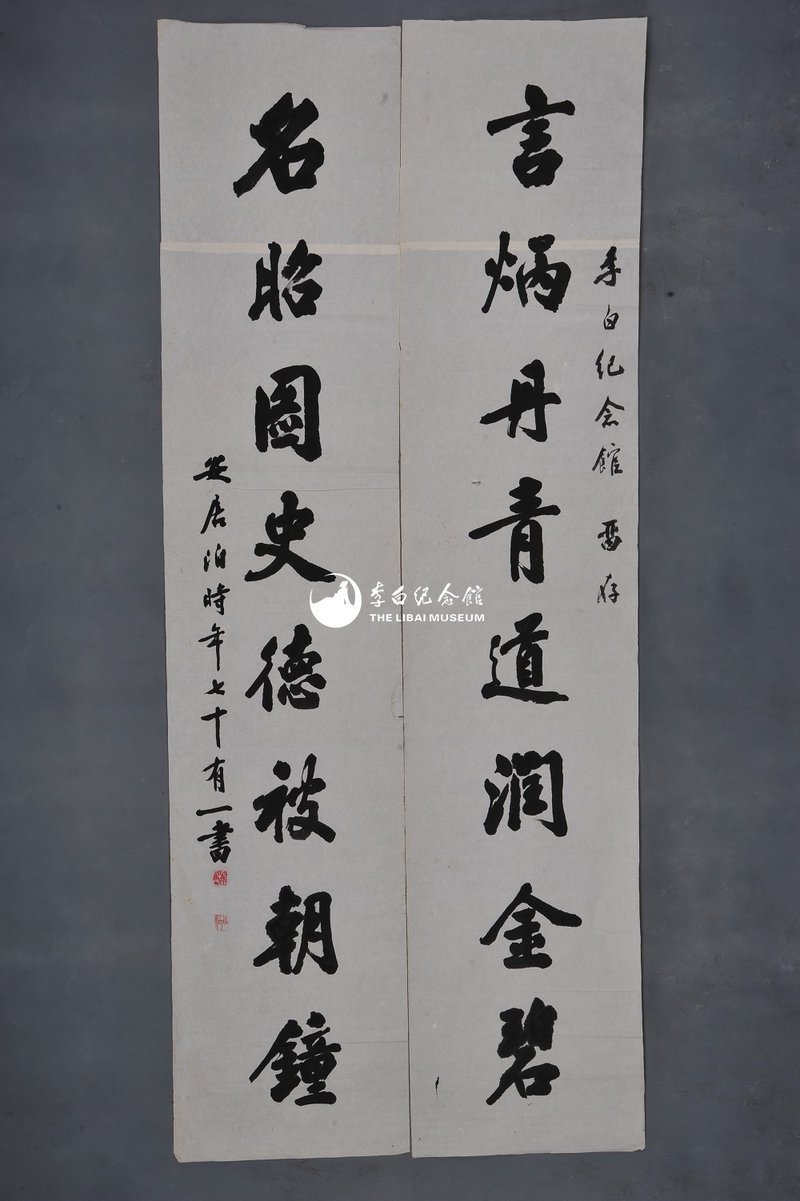 李白紀念館 留存
言炳丹青道潤金碧
名昭圖史德被朝鐘
居泊時年七十有一書
李白纪念館
THE LIBAI MUSEUM